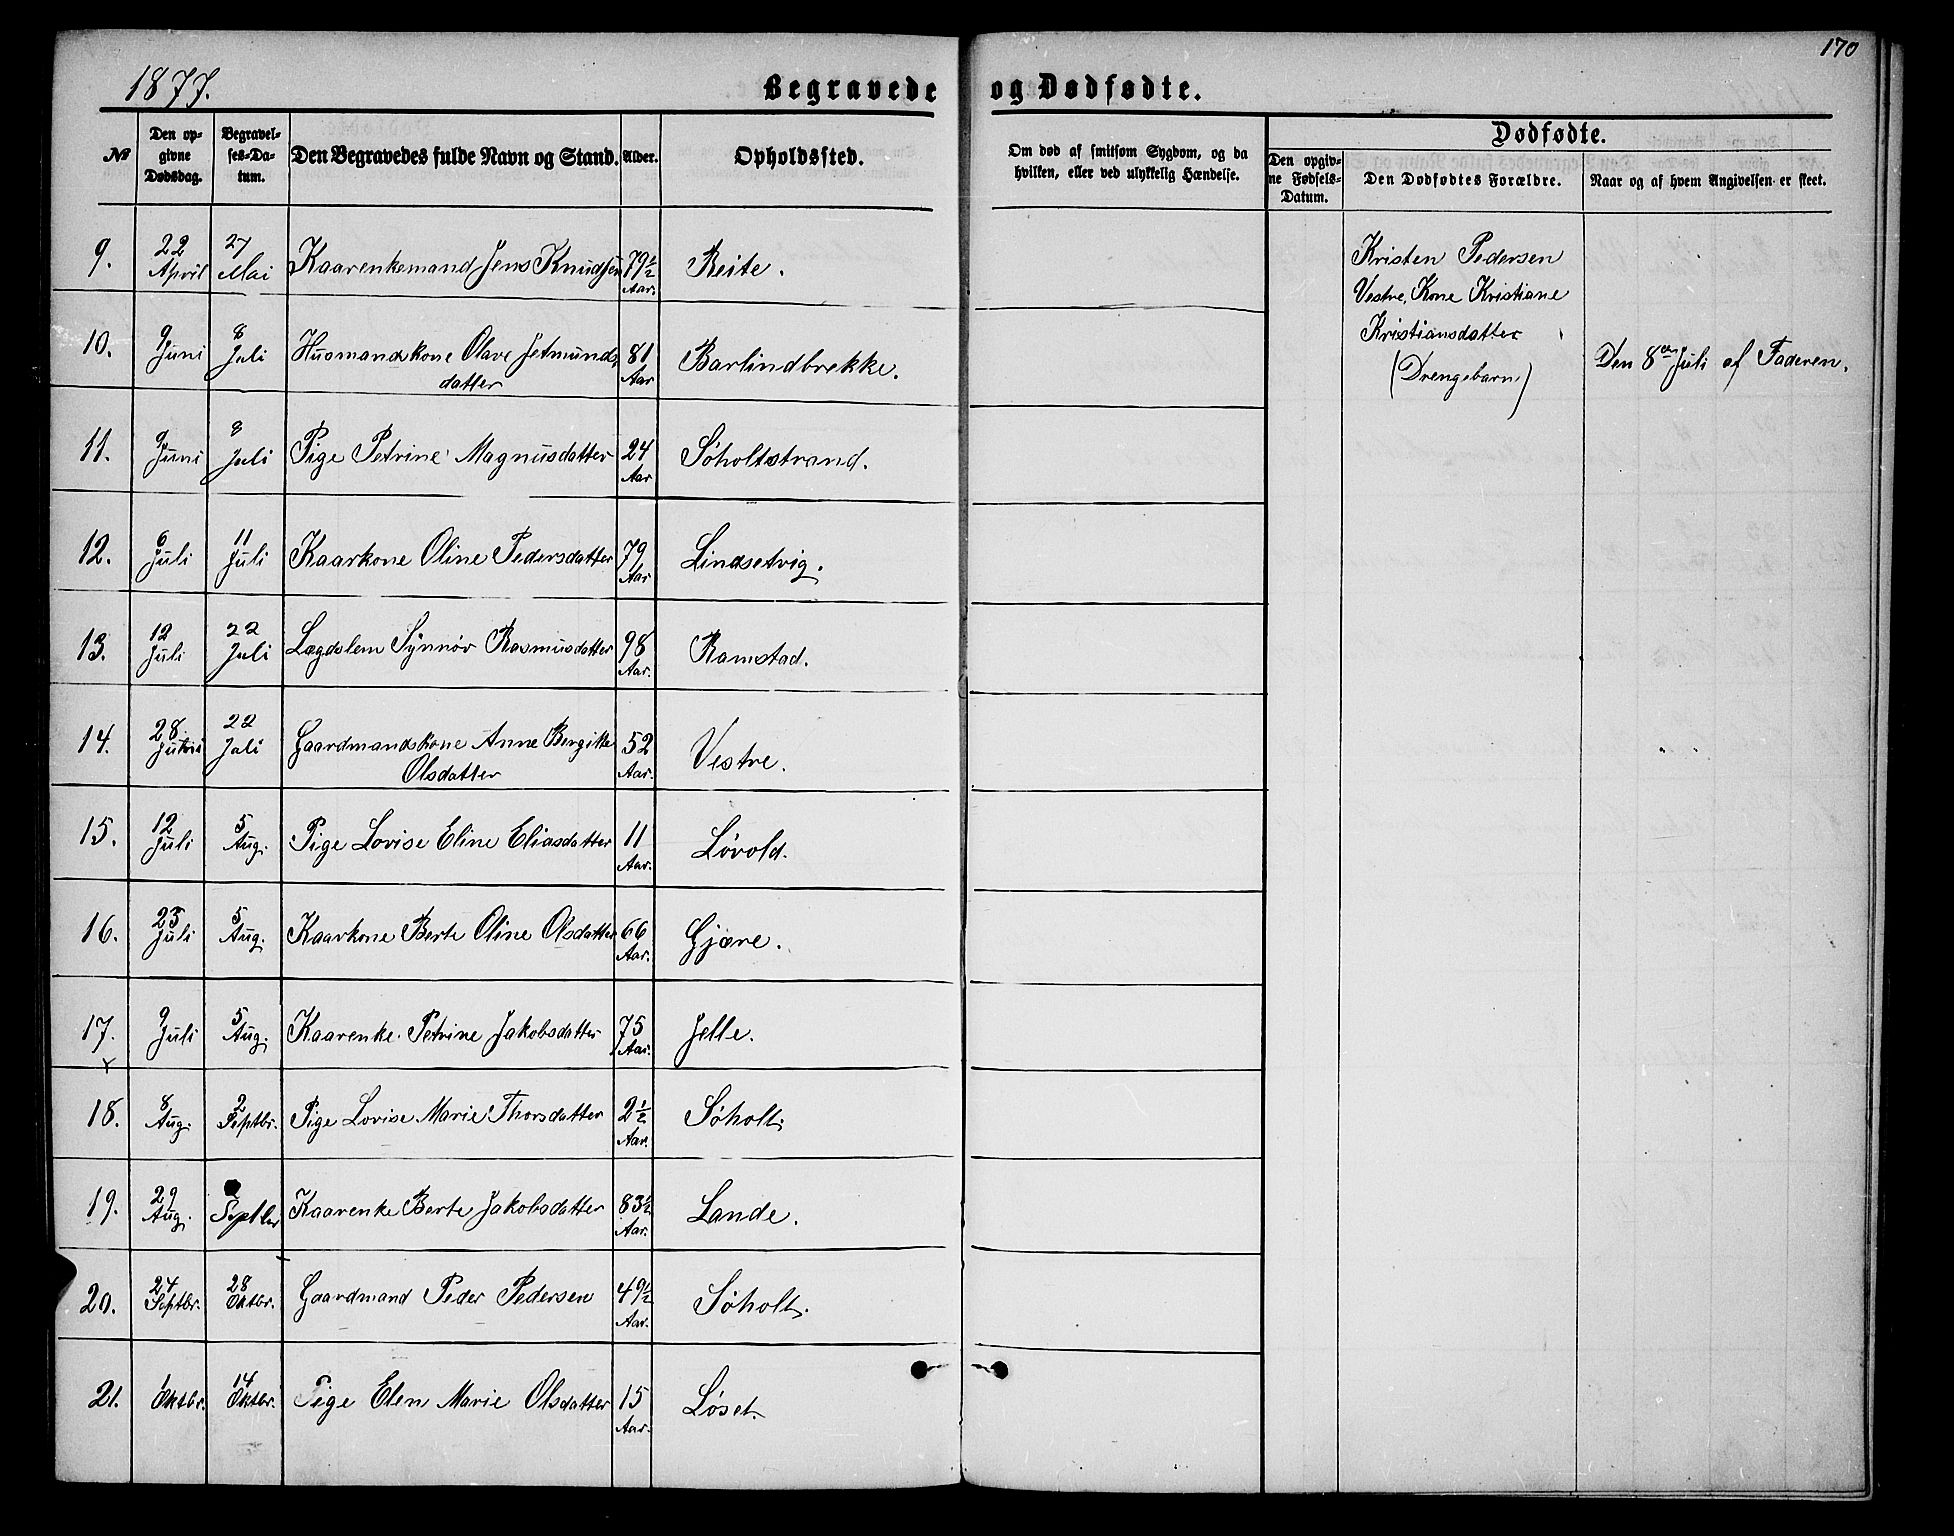 170
1877.
Begravede og Dødfødte.
№
Den opgivne Dødsdag.
Begravelses-Datum.
Den Begravedes fulde Navn og Stand.
Alder.
Opholdssted.
Om død af smitsom Sygdom, og da hvilken, eller ved ulykkelig Hændelse.
Dødfødte.
Den opgivne Fødsels-Datum.
Den Dødfødtes Forældre.
Naar og af hvem Angivelsen er skeet.
9. 22 April 27 Mai Kaarenkemand Jens Knudsen 79½ Aar. Reite.
Kristen Pedersen
Vestre, Kone Kristiane
Kristiansdatter
(Drengebarn)
Den 8de Juli af Faderen.
10. 9 Juni 8 Juli Husmandskone Olave Jetmunds 81 Aar Barlindbrekke.
datter
11. 9 Juni 8 Juli Pige Petrine Magnusdatter 24 Aar Søholtstrand.
12. 6 Juli 11 Juli Kaarkone Oline Pedersdatter 79 Aar Lindsetvig.
13. 12 Juli 22 Juli Lægdslem Synnøv Rasmusdatter 98 Aar. Ramstad.
14. 28 22 Juli Gaardmandskone Anne Bergitte 52 Aar. Vestre.
Olsdatter
15. 12 Juli 5 Aug. Pige Lovise Eline Eliasdatter 11 Aar. Løvold.
16. 23 Juli 5 Aug. Kaarkone Berte Oline Olsdatter 66 Aar. Gjære.
17. 9 Juli 5 Aug. Kaarenke. Petrine Jakobsdatter 75 Aar. Jelle.
18. 8 Aug. 2 Septbr. Pige Lovise Marie Thorsdatter 2½ Aar. Søholt.
19. 29 Aug. Septbr Kaarenke Berte Jakobsdatter 83½ Aar. Lande.
20. 24 Septbr. 28 Oktbr. Gaardmand Peder Pedersen 49½ Aar. Søholt.
21. 1 Oktbr. 14 Oktbr. Pige Elen Marie Olsdatter 15 Aar. Løset.